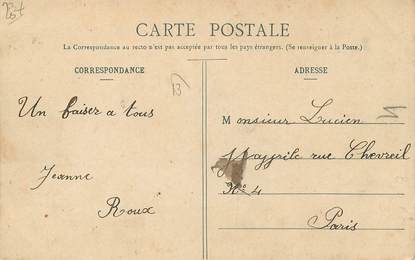 CARTE POSTALE
La Correspondance au recto n'est pas acceptée par tous les pays étrangers. (Se renseigner à la Poste.)
CORRESPONDANCE
ADRESSE
13
Un baiser a tous
Jeanne
Roux
Monsieur Lucien
rue Chevreil
No 4
Paris